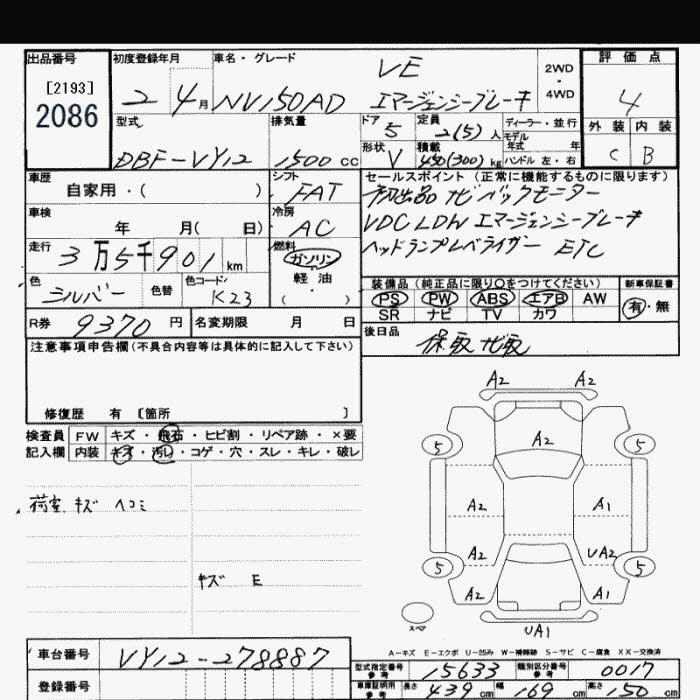 出品番号 初度登録年月 車名・グレード VE 2WD・4WD 評価点
[2193]
2086 2 4月 NV150AD エマージェンシーブレーキ 4
型式 排気量 ドア 5 定員 2(5)人 ディーラー・並行 外装 内装
モデル年式 年
DBF-VY12 1500cc 形状 V 積載 450(300)kg ハンドル 左・右 C B
車歴 シフト セールスポイント(正常に機能するものに限ります)
自家用・( ) FAT 初出品 ナビ バックモニター
車検 冷房 VDC LDW エマージェンシーブレーキ
年 月(日) AC ヘッドランプレベライザー ETC
走行 3万5千901km 燃料 ガソリン
軽油
( )
色 シルバー 色替 色コード K23
装備品(純正品に限り○をつけてください) 新車保証書
PS PW ABS エアB AW 有・無
SR ナビ TV カワ
R券 9370円 名変期限 月 日 後日品
保取 ナビ取
注意事項申告欄(不具合内容等は具体的に記入して下さい)
修復歴 有 [箇所 ]
検査員 FW キズ・飛石・ヒビ割・リペア跡・×要
記入欄 内装 キズ・汚レ・コゲ・穴・スレ・キレ・破レ
荷室 キズ ヘコミ
キズ E
A2 A2
A2
5 5
A2 A1
A2 UA2
5 5
A2 A1
スペア UA1
A-キズ E-エクボ U-凹み W-補修跡 S-サビ C-腐食 XX-交換済
車台番号 VY12-278887
型式指定番号 参考 15633 類別区分番号 参考 0017
登録番号 車庫証明用 参考 長さ 439cm 幅 169cm 高さ 150cm